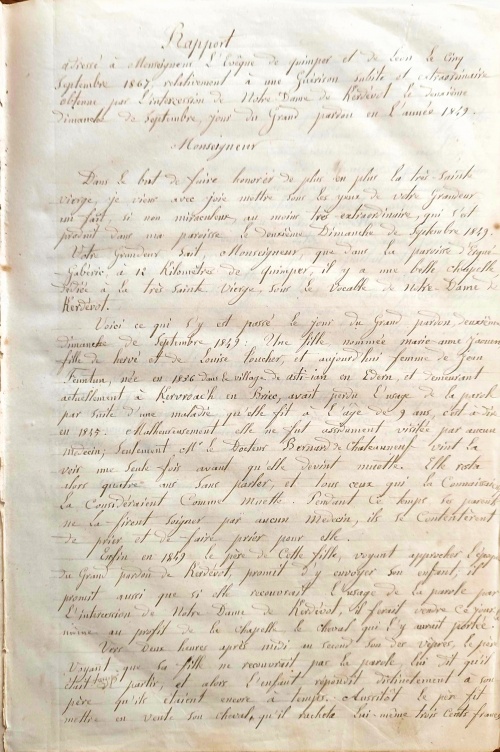 Rapport
adressé à Monseigneur L'Evêque de quimper et de Léon le cinq
Septembre 1867, relativement à une Guérison subite et extraordinaire
obtenue par L'intercession de Notre Dame de Kerdévot le deuxième
dimanche de Septembre, jour du Grand pardon en L'année 1849.
Monseigneur
Dans le but de faire honorer de plus en plus la très Sainte
vierge, je viens avec joie mettre sous les yeux de votre Grandeur
un fait, si non miraculeux, au moins très extraordinaire, qui s'est
produit dans ma paroisse le deuxième Dimanche de Septembre 1849.
Votre Grandeur Sait, Monseigneur, que dans la paroisse d'Ergué-
Gabéric à 12 Kilomètres de quimper, il y a une belle chapelle
dédiée à la très sainte Vierge sous le vocable de Notre-Dame de
Kerdévot.
Voici ce qui s'y est passé le jour du Grand pardon, deuxième
dimanche de Septembre 1849: Une fille, nommée marie anne
fille de hervé et de Louise, et aujourd'hui femme de Jean
, née en 1836 dans le village de en Edern, et demeurant
actuellement à Kervroach en Briec, avait perdu L'usage de la parole
par suite d'une maladie qu'elle fit à L'age de 9 ans, c'est à dire
en 1845. Malheureusement elle ne fut assidument visitée par aucun
Médecin; Seulement, Mr le Docteur Bernard de Chateauneuf vint la
voir une Seule fois avant qu'elle devint muette. Elle resta
alors quatre ans Sans parler, et tous ceux qui la Connaissaient
la Considéraient Comme Muette. Pendant Ce temps ses parents
ne la firent Soigner par aucun Médecin, ils se Contentèrent
de prier et de faire prier pour elle.
Enfin en 1849 le père de Cette fille, voyant approcher l'époque
du Grand pardon de Kerdévot, promit d'y envoyer Son enfant, il
promit aussi que si elle recouvrait L'usage de la parole par
L'intercession de Notre Dame de Kerdévot, il ferait vendre Ce jour
même au profit de la chapelle le cheval qui L'y aurait portée.
Vers Deux heures après midi au second Son des vêpres, le père
voyant que Sa fille ne recouvrait pas la parole, lui dit qu'il
était partir, et alors L'enfant répondit distinctement à son
père qu'ils étaient encore à temps. Aussitôt le père fit
mettre en vente son cheval, qu'il racheta lui-même trois Cents francs